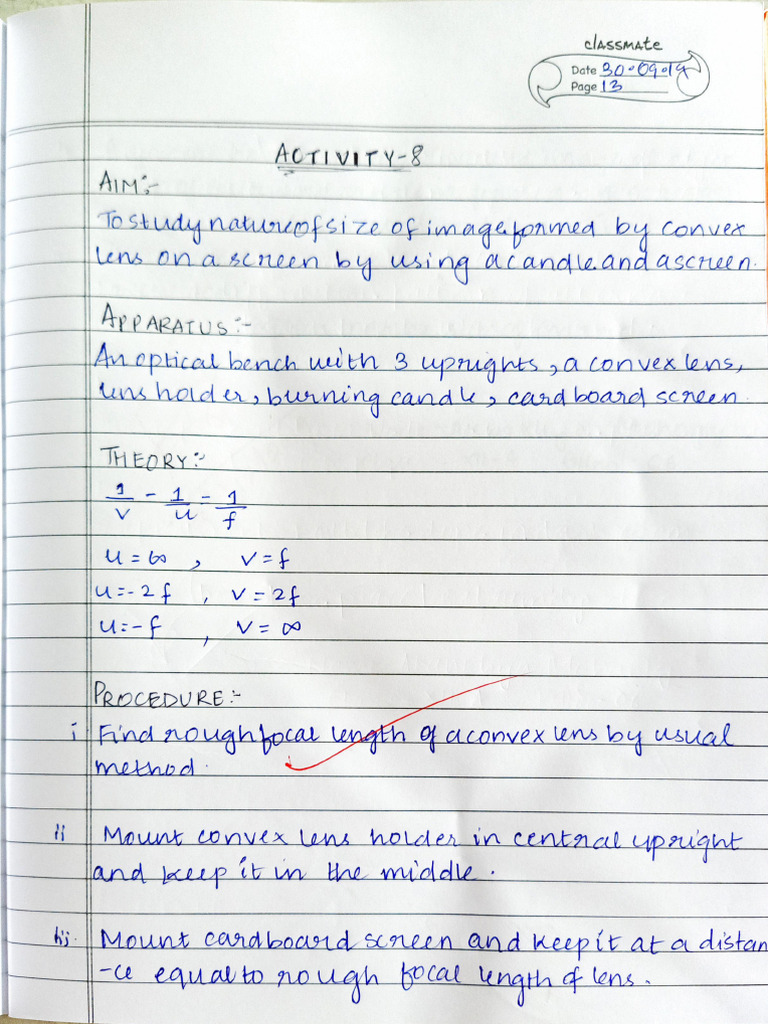 classmate
Date 30.09.19
Page 13
ACTIVITY-8
AIM:-
To study nature of size of image formed by convex
lens on a screen by using a candle and a screen.
APPARATUS:-
An optical bench with 3 uprights, a convex lens,
lens holder, burning candle, cardboard screen.
THEORY:-
1/v - 1/u = 1/f
u = ∞ , v = f
u = -2f , v = 2f
u = -f , v = ∞
PROCEDURE:-
i Find rough focal length of a convex lens by usual
method.
ii Mount convex lens holder in central upright
and keep it in the middle.
iii. Mount cardboard screen and keep it at a distan
-ce equal to rough focal length of lens.